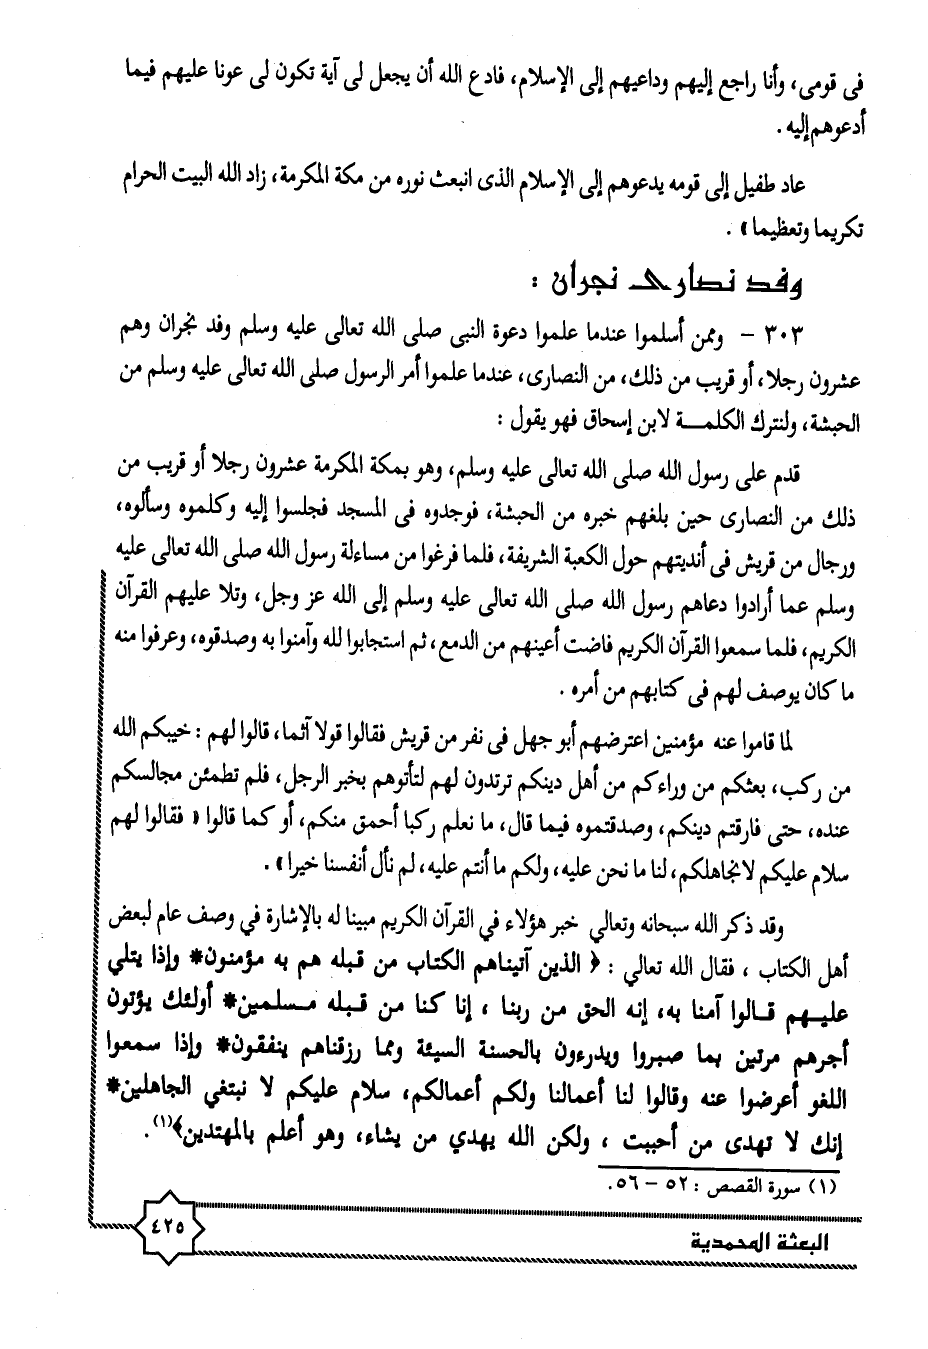 فى قومى، وأنا راجع إليهم وداعيهم إلى الإسلام، فادع الله أن يجعل لى آية تكون لى عونا عليهم فيما
أدعوهم إليه .
عاد طفيل إلى قومه يدعوهم إلى الإسلام الذى انبعث نوره من مكة المكرمة، زاد الله البيت الحرام
تكريما وتعظيما » .
وفد نصارى نجران :
٣٠٣ - وممن أسلموا عندما علموا دعوة النبى صلى الله تعالى عليه وسلم وفد نجران وهم
عشرون رجلا، أو قريب من ذلك، من النصارى، عندما علموا أمر الرسول صلى الله تعالى عليه وسلم من
الحبشة، ولنترك الكلمـــة لابن إسحاق فهو يقول :
قدم على رسول الله صلى الله تعالى عليه وسلم، وهو بمكة المكرمة عشرون رجلا أو قريب من
ذلك من النصارى حين بلغهم خبره من الحبشة، فوجدوه فى المسجد فجلسوا إليه وكلموه وسألوه،
ورجال من قريش فى أنديتهم حول الكعبة الشريفة، فلما فرغوا من مساءلة رسول الله صلى الله تعالى عليه
وسلم عما أرادوا دعاهم رسول الله صلى الله تعالى عليه وسلم إلى الله عز وجل، وتلا عليهم القرآن
الكريم، فلما سمعوا القرآن الكريم فاضت أعينهم من الدمع، ثم استجابوا لله وآمنوا به وصدقوه، وعرفوا منه
ما كان يوصف لهم فى كتابهم من أمره .
لما قاموا عنه مؤمنين اعترضهم أبو جهل فى نفر من قريش فقالوا قولا آثما، قالوا لهم : خيبكم الله
من ركب، بعثكم من وراءكم من أهل دينكم ترتدون لهم لتأتوهم بخبر الرجل، فلم تطمئن مجالسكم
عنده، حتى فارقتم دينكم، وصدقتموه فيما قال، ما نعلم ركبا أحمق منكم، أو كما قالوا « فقالوا لهم
سلام عليكم لانجاهلكم، لنا ما نحن عليه، ولكم ما أنتم عليه، لم نأل أنفسنا خيرا » .
وقد ذكر الله سبحانه وتعالي خبر هؤلاء في القرآن الكريم مبينا له بالإشارة في وصف عام لبعض
أهل الكتاب ، فقال الله تعالي : ﴿ الذين آتيناهم الكتاب من قبله هم به مؤمنون* وإذا يتلي
عليـهم قـالوا آمنا به، إنه الحق من ربنا ، إنا كنا من قـبله مـسلمين* أولئك يؤتون
أجرهم مرتين بما صبروا ويدرءون بالحسنة السيئة ومما رزقناهم ينفقون* وإذا سمعوا
اللغو أعرضوا عنه وقالوا لنا أعمالنا ولكم أعمالكم، سلام عليكم لا نبتغي الجاهلين*
إنك لا تهدى من أحببت ، ولكن الله يهدي من يشاء، وهو أعلم بالمهتدين﴾(١).
(١) سورة القصص : ٥٢ - ٥٦.
البعثة المحمدية
٤٢٥